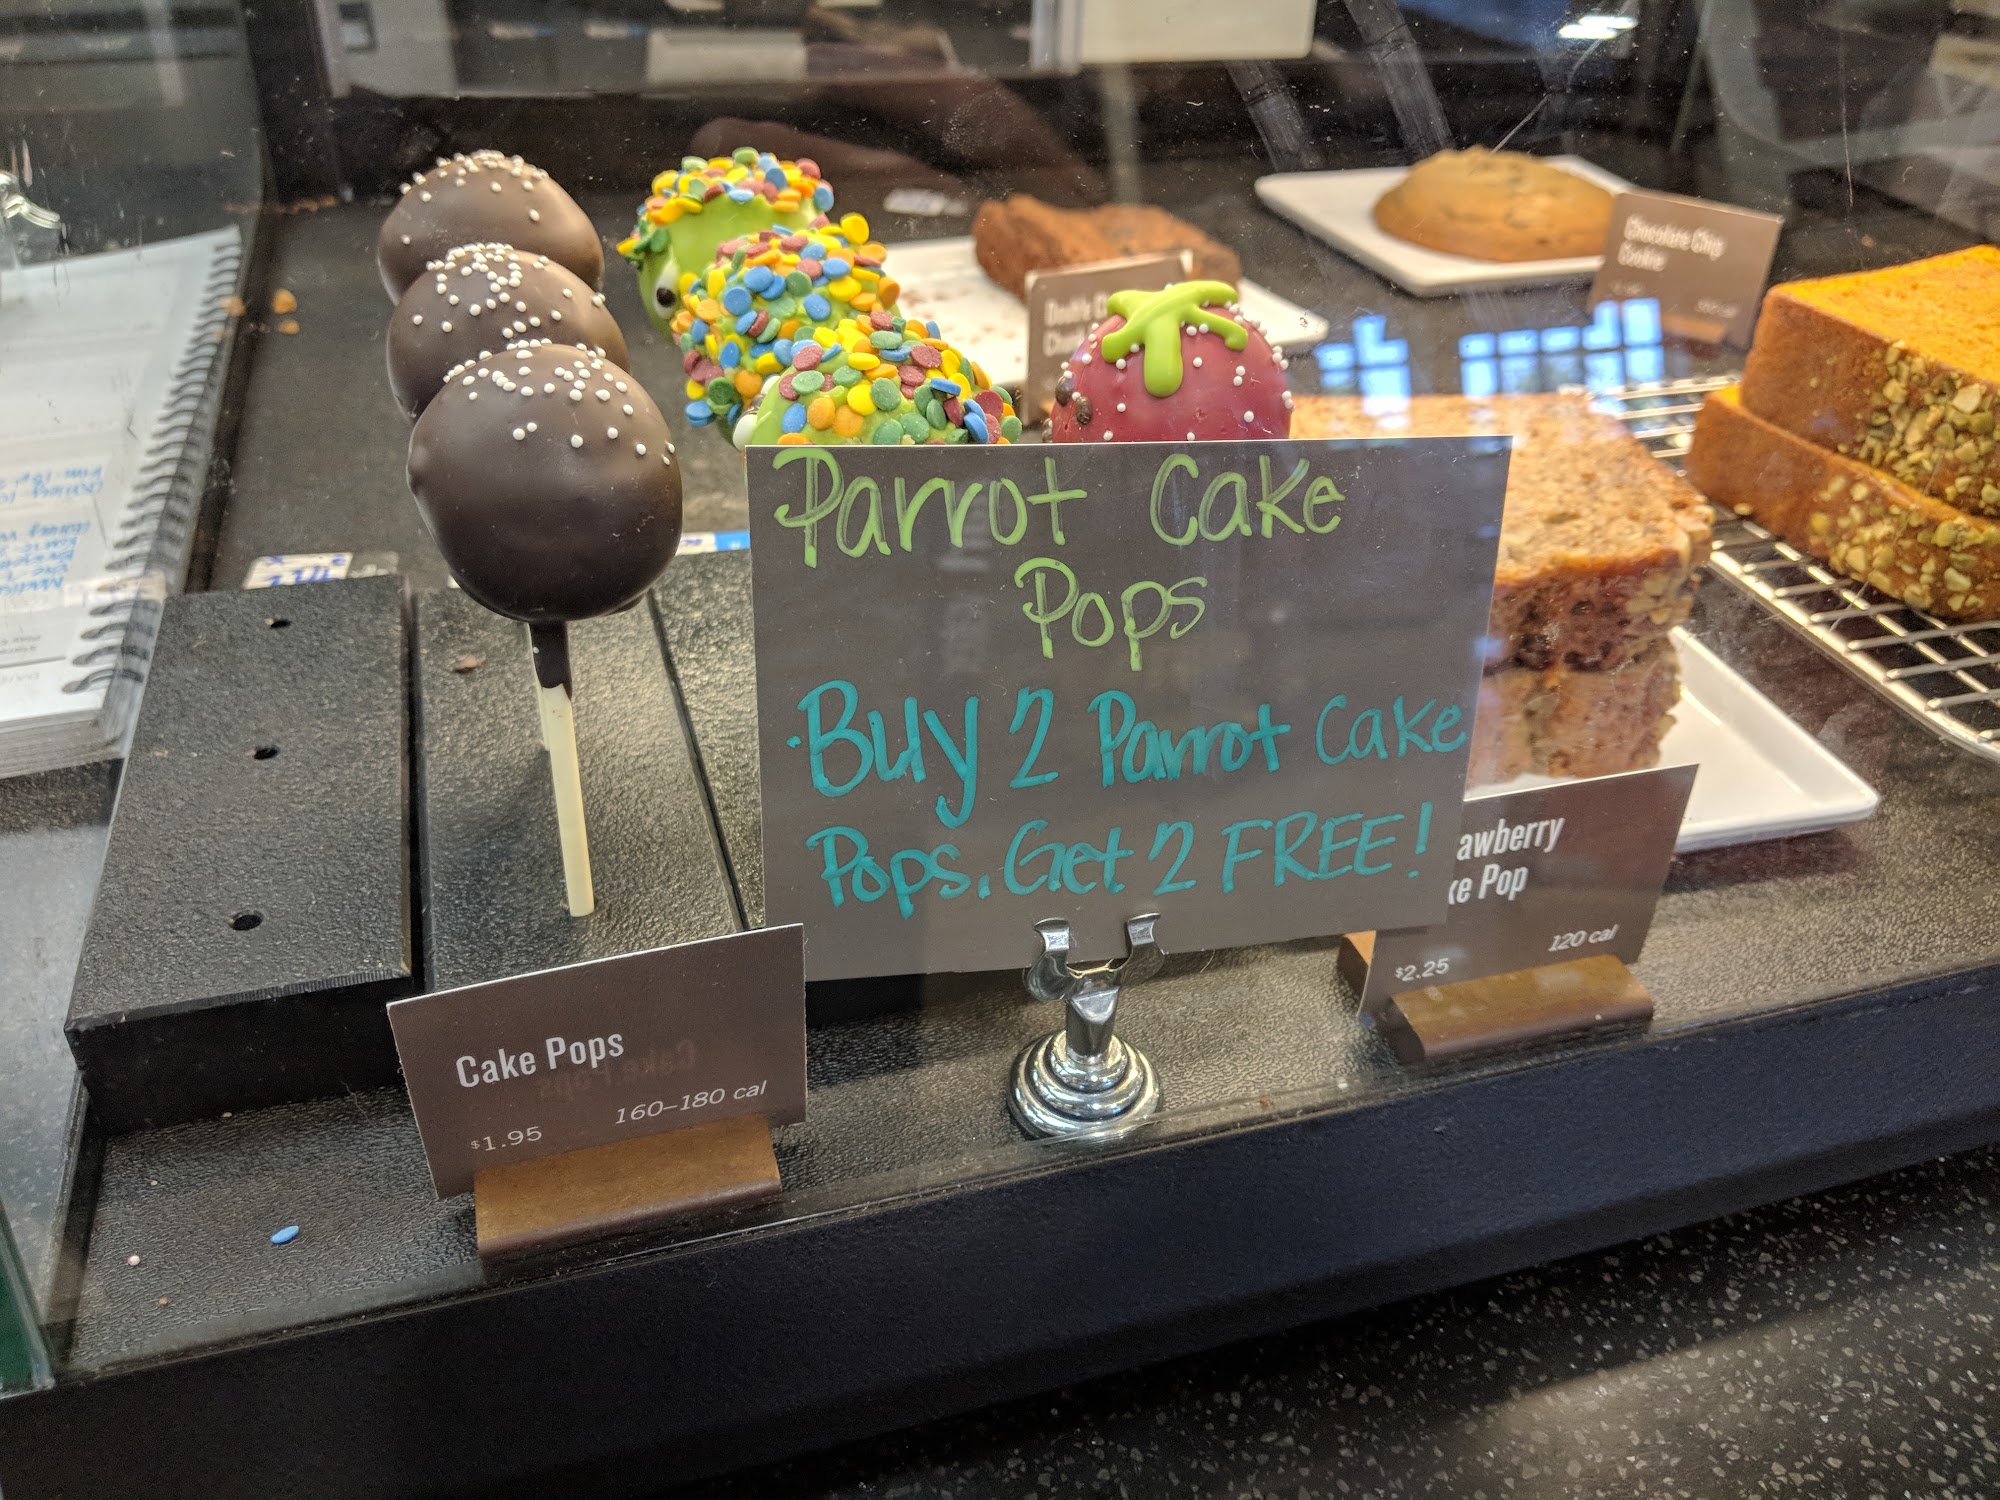 Parrot Cake
Pops
·Buy 2 Parrot Cake
Pops. Get 2 FREE!
Cake Pops
$1.95 160–180 cal
awberry
ke Pop
$2.25 120 cal
Chocolate Chip
Cookie
Double
Chunk